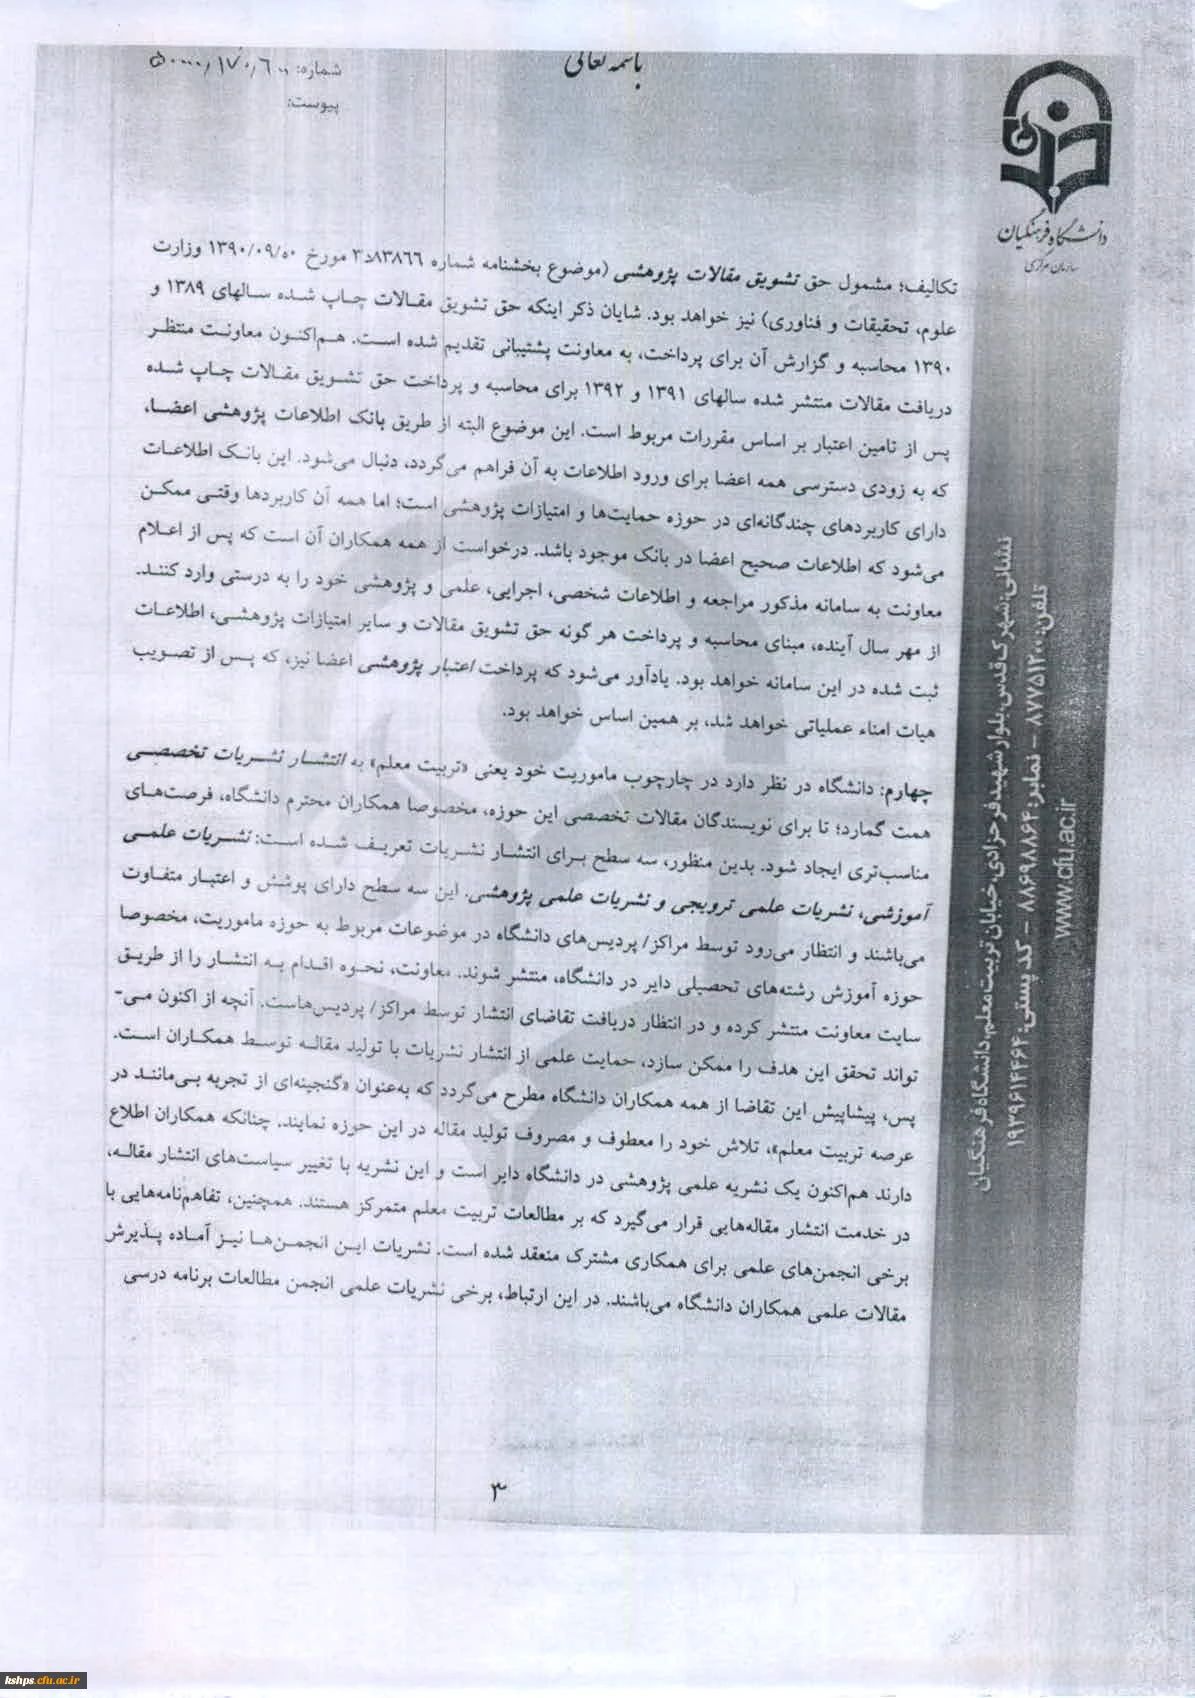 باسمه تعالی
شماره: ۵۰۰۰۰,۱۷۰,۶۰۰
پیوست:
دانشگاه فرهنگیان
سازمان مرکزی
تکالیف؛ مشمول حق تشویق مقالات پژوهشی (موضوع بخشنامه شماره مورخ وزارت
علوم، تحقیقات و فناوری) نیز خواهد بود. شایان ذکر اینکه حق تشویق مقالات چاپ شده سالهای ۱۳۸۹ و
۱۳۹۰ محاسبه و گزارش آن برای پرداخت، به معاونت پشتیبانی تقدیم شده است. هم‌اکنون معاونت منتظر
دریافت مقالات منتشر شده سالهای ۱۳۹۱ و ۱۳۹۲ برای محاسبه و پرداخت حق تشویق مقالات چاپ شده
پس از تامین اعتبار بر اساس مقررات مربوط است. این موضوع البته از طریق بانک اطلاعات پژوهشی اعضا،
که به زودی دسترسی همه اعضا برای ورود اطلاعات به آن فراهم می‌گردد، دنبال می‌شود. این بانک اطلاعات
دارای کاربردهای چندگانه‌ای در حوزه حمایت‌ها و امتیازات پژوهشی است؛ اما همه آن کاربردها وقتی ممکن
می‌شود که اطلاعات صحیح اعضا در بانک موجود باشد. درخواست از همه همکاران آن است که پس از اعلام
معاونت به سامانه مذکور مراجعه و اطلاعات شخصی، اجرایی، علمی و پژوهشی خود را به درستی وارد کنند.
از مهر سال آینده، مبنای محاسبه و پرداخت هر گونه حق تشویق مقالات و سایر امتیازات پژوهشی، اطلاعات
ثبت شده در این سامانه خواهد بود. یادآور می‌شود که پرداخت اعتبار پژوهشی اعضا نیز، که پس از تصویب
هیات امناء عملیاتی خواهد شد، بر همین اساس خواهد بود.
چهارم: دانشگاه در نظر دارد در چارچوب ماموریت خود یعنی «تربیت معلم» به انتشار نشریات تخصصی
همت گمارد؛ تا برای نویسندگان مقالات تخصصی این حوزه، مخصوصا همکاران محترم دانشگاه، فرصت‌های
مناسب‌تری ایجاد شود. بدین منظور، سه سطح برای انتشار نشریات تعریف شده است: نشریات علمی
آموزشی، نشریات علمی ترویجی و نشریات علمی پژوهشی. این سه سطح دارای پوشش و اعتبار متفاوت
می‌باشند و انتظار می‌رود توسط مراکز/ پردیس‌های دانشگاه در موضوعات مربوط به حوزه ماموریت، مخصوصا
حوزه آموزش رشته‌های تحصیلی دایر در دانشگاه، منتشر شوند. معاونت، نحوه اقدام به انتشار را از طریق
سایت معاونت منتشر کرده و در انتظار دریافت تقاضای انتشار توسط مراکز/ پردیس‌هاست. آنچه از اکنون می-
تواند تحقق این هدف را ممکن سازد، حمایت علمی از انتشار نشریات با تولید مقاله توسط همکاران است.
پس، پیشاپیش این تقاضا از همه همکاران دانشگاه مطرح می‌گردد که به‌عنوان «گنجینه‌ای از تجربه بی‌مانند در
عرصه تربیت معلم»، تلاش خود را معطوف و مصروف تولید مقاله در این حوزه نمایند. چنانکه همکاران اطلاع
دارند هم‌اکنون یک نشریه علمی پژوهشی در دانشگاه دایر است و این نشریه با تغییر سیاست‌های انتشار مقاله،
در خدمت انتشار مقاله‌هایی قرار می‌گیرد که بر مطالعات تربیت معلم متمرکز هستند. همچنین، تفاهم‌نامه‌هایی با
برخی انجمن‌های علمی برای همکاری مشترک منعقد شده است. نشریات این انجمن‌ها نیز آماده پذیرش
مقالات علمی همکاران دانشگاه می‌باشند. در این ارتباط، برخی نشریات علمی انجمن مطالعات برنامه درسی
۳
نشانی: شهرک قدس، بلوار شهید فرحزادی، خیابان تربیت معلم، دانشگاه فرهنگیان
تلفن: ۸۷۷۵۱۲۰۰ – نمابر: ۸۸۶۹۸۸۶۴ – کد پستی: ۱۹۳۹۶۱۴۴۶۴
www.cfu.ac.ir
kshps.cfu.ac.ir